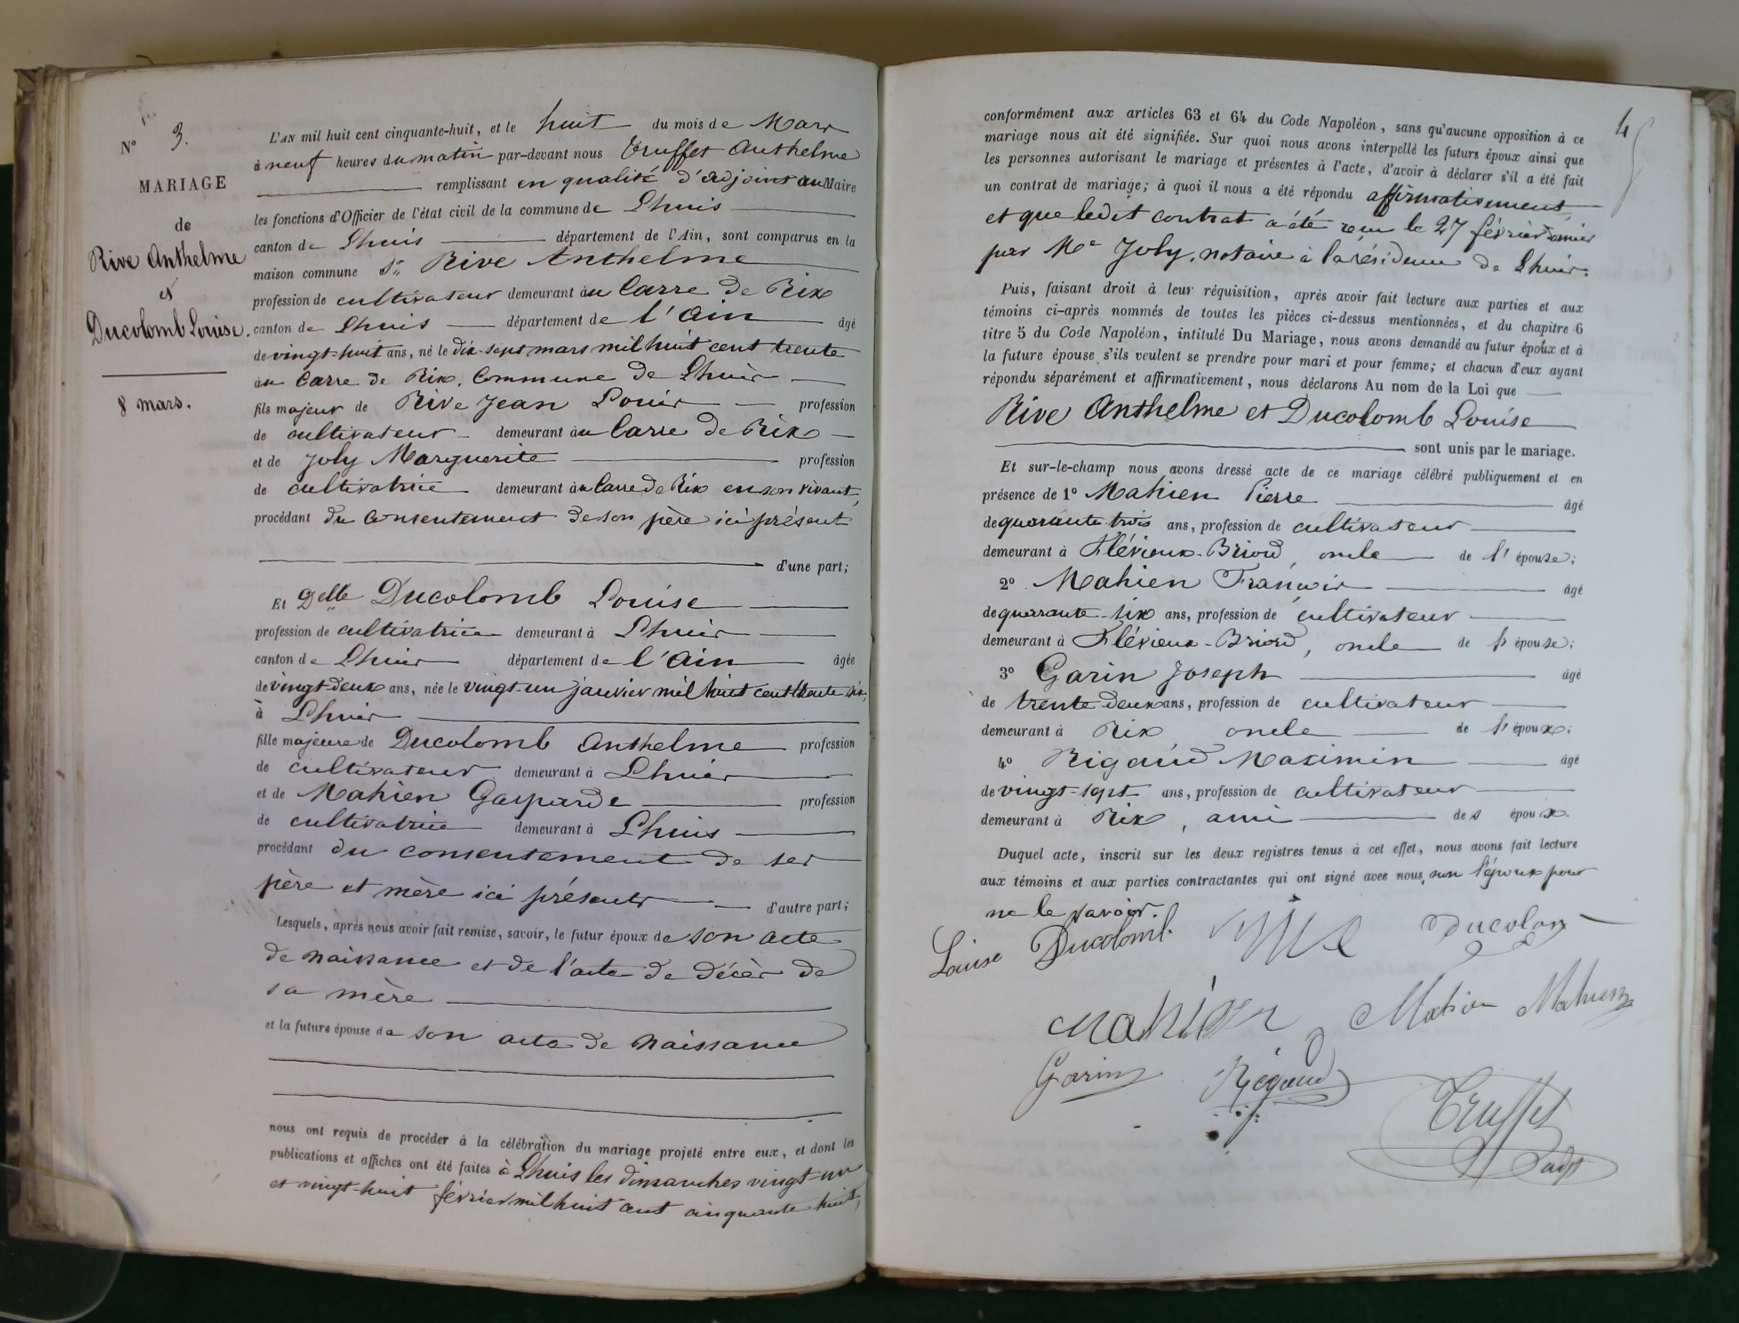 N° 3.
MARIAGE
de
Rive Anthelme
et
Ducolomb Louise.
8 mars.
L'AN mil huit cent cinquante-huit, et le huit du mois de Mars
à neuf heures du matin par-devant nous Truffet Anthelme
remplissant en qualité d'adjoint au Maire
les fonctions d'Officier de l'état civil de la commune de Lhuis
canton de Lhuis département de l'Ain, sont comparus en la
maison commune Sr Rive Anthelme
profession de cultivateur demeurant au Carre de Rix
canton de Lhuis département de l'Ain âgé
de vingt-huit ans, né le dix-sept mars mil huit cent trente
au Carre de Rix, Commune de Lhuis
fils majeur de Rive Jean Louis profession
de cultivateur demeurant au Carre de Rix
et de Joly Marguerite profession
de cultivatrice demeurant au Carre de Rix en son vivant,
procédant du consentement de son père ici présent
d'une part;
Et Delle Ducolomb Louise
profession de cultivatrice demeurant à Lhuis
canton de Lhuis département de l'Ain âgée
de vingt-deux ans, née le vingt-un janvier mil huit cent trente six,
à Lhuis
fille majeure de Ducolomb Anthelme profession
de cultivateur demeurant à Lhuis
et de Mahien Gasparde profession
de cultivatrice demeurant à Lhuis
procédant du consentement de ses
père et mère ici présents d'autre part;
Lesquels, après nous avoir fait remise, savoir, le futur époux de son acte
de naissance et de l'acte de décès de
sa mère
et la future épouse de son acte de naissance
nous ont requis de procéder à la célébration du mariage projeté entre eux, et dont les
publications et affiches ont été faites à Lhuis les dimanches vingt-un
et vingt-huit février mil huit cent cinquante huit,
conformément aux articles 63 et 64 du Code Napoléon, sans qu'aucune opposition à ce
mariage nous ait été signifiée. Sur quoi nous avons interpellé les futurs époux ainsi que
les personnes autorisant le mariage et présentes à l'acte, d'avoir à déclarer s'il a été fait
un contrat de mariage; à quoi il nous a été répondu affirmativement,
et que ledit contrat a été reçu le 27 février dernier
par Me Joly, notaire à la résidence de Lhuis.
Puis, faisant droit à leur réquisition, après avoir fait lecture aux parties et aux
témoins ci-après nommés de toutes les pièces ci-dessus mentionnées, et du chapitre 6
titre 5 du Code Napoléon, intitulé Du Mariage, nous avons demandé au futur époux et à
la future épouse s'ils veulent se prendre pour mari et pour femme; et chacun d'eux ayant
répondu séparément et affirmativement, nous déclarons Au nom de la Loi que
Rive Anthelme et Ducolomb Louise
sont unis par le mariage.
Et sur-le-champ nous avons dressé acte de ce mariage célébré publiquement et en
présence de 1° Mahien Pierre âgé
de quarante trois ans, profession de cultivateur
demeurant à Flévieux-Briord, oncle de l'épouse;
2° Mahien François âgé
de quarante-six ans, profession de cultivateur
demeurant à Flévieux-Briord, oncle de l'épouse;
3° Garin Joseph âgé
de trente-deux ans, profession de cultivateur
demeurant à Rix oncle de l'époux;
4° Rigaud Maximin âgé
de vingt-sept ans, profession de cultivateur
demeurant à Rix, ami des époux.
Duquel acte, inscrit sur les deux registres tenus à cet effet, nous avons fait lecture
aux témoins et aux parties contractantes qui ont signé avec nous, non l'époux pour
ne le savoir.
Louise Ducolomb. Rive Ducolom
Mahien Mahien Mahien
Garin Rigaud
Truffet
adjt